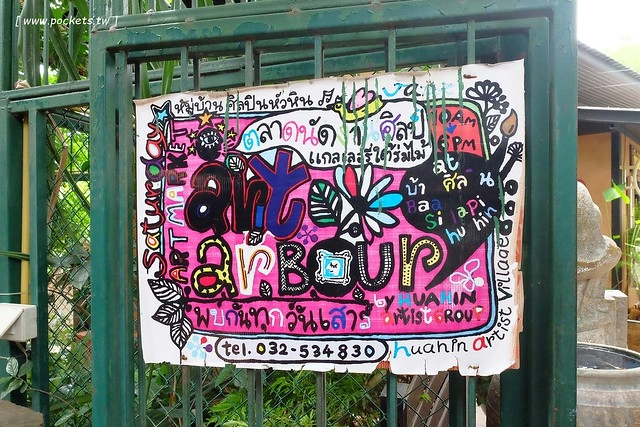 [ www.pockets.tw ]
หมู่บ้าน ศิลปินหัวหิน
Saturday
ART MARKET
ตลาดนัด งานศิลป์
แกลเลอรี่ใต้ร่มไม้
10AM
6PM
at
บ้าน ศิลปิน
Baan
Silapin
huahin
art
arBour
by HUAHIN
artist GROUP
พบกันทุกวันเสาร์
tel. 032-534830
huahin artist village